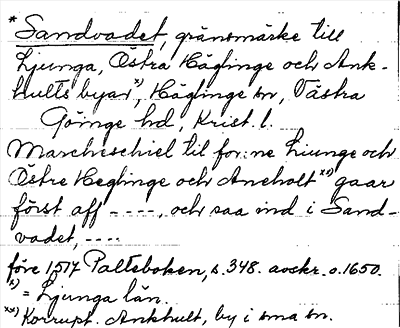 * Sandvadet, gränsmärke till
Ljunga, Östra Häglinge och Ank-
hults byar*), Häglinge sn, Västra
Göinge hd, Krist. l.
Marcheschiel til for:ne Liunge och
Östre Heglinge och Aneholt**) gaar
först aff ----, och saa ind i Sand-
vadet, ----
före 1517 Palteboken, s. 348. avskr. o. 1650.
*) = Ljunga län.
**) Korrupt. Ankhult, by i sma sn.